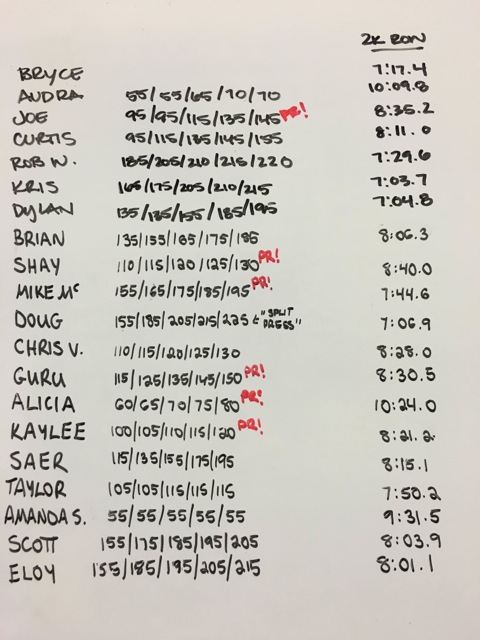 2K ROW
BRYCE 7:17.4
AUDRA 55/55/65/70/70 10:09.8
JOE 95/95/115/135/145 PR! 8:35.2
CURTIS 95/115/135/145/155 8:11.0
ROB W. 185/205/210/215/220 7:29.6
KRIS 165/175/205/210/215 7:03.7
DYLAN 135/135/155/185/195 7:04.8
BRIAN 135/155/165/175/185 8:06.3
SHAY 110/115/120/125/130 PR! 8:40.0
MIKE Mc 155/165/175/185/195 PR! 7:44.6
DOUG 155/185/205/215/225 ← "SPLIT PRESS" 7:06.9
CHRIS V. 110/115/120/125/130 8:28.0
GURU 115/125/135/145/150 PR! 8:30.5
ALICIA 60/65/70/75/80 PR! 10:24.0
KAYLEE 100/105/110/115/120 PR! 8:21.2
SAER 115/135/155/175/195 8:15.1
TAYLOR 105/105/115/115/115 7:50.2
AMANDA S. 55/55/55/55/55 9:31.5
SCOTT 155/175/185/195/205 8:03.9
ELOY 155/185/195/205/215 8:01.1